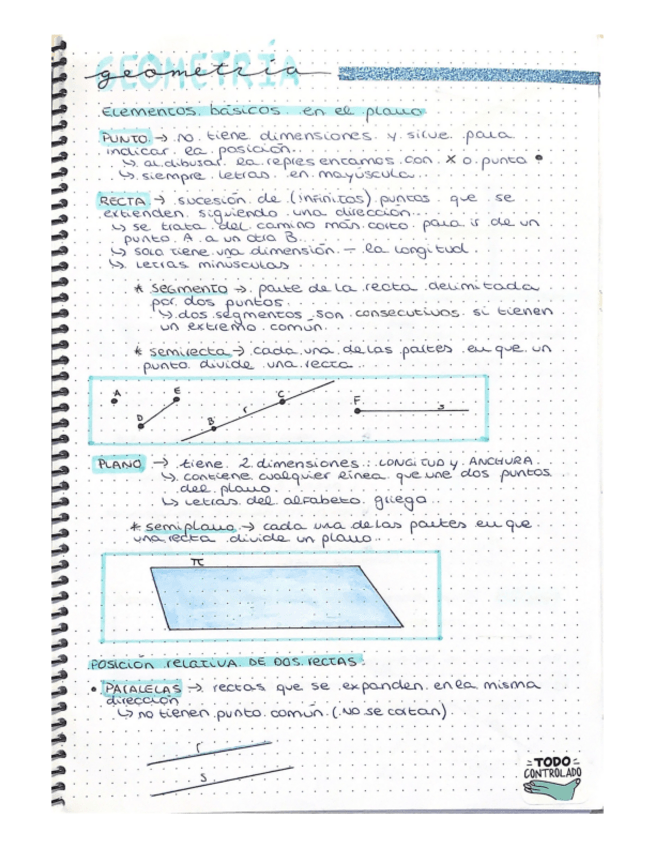 GEOMETRÍA
geometría
Elementos básicos en el plano
PUNTO → no tiene dimensiones y sirve para
indicar la posición.
↳ al dibujar la representamos con x o punto •
↳ siempre letras en mayúscula.
RECTA → sucesión de (infinitos) puntos que se
extienden siguiendo una dirección.
↳ se trata del camino más corto para ir de un
punto A a un otro B.
↳ solo tiene una dimensión – la longitud
↳ letras minúsculas
* segmento → parte de la recta delimitada
por dos puntos.
↳ dos segmentos son consecutivos si tienen
un extremo común.
* semirecta → cada una de las partes en que un
punto divide una recta
A E D B r C F s
PLANO → tiene 2 dimensiones: LONGITUD y ANCHURA
↳ contiene cualquier línea que une dos puntos
del plano.
↳ letras del alfabeto griego
* semiplano → cada una de las partes en que
una recta divide un plano.
π
POSICIÓN RELATIVA DE DOS RECTAS:
• PARALELAS → rectas que se expanden en la misma
dirección
↳ no tienen punto común (NO se cortan)
r
s
TODO
CONTROLADO